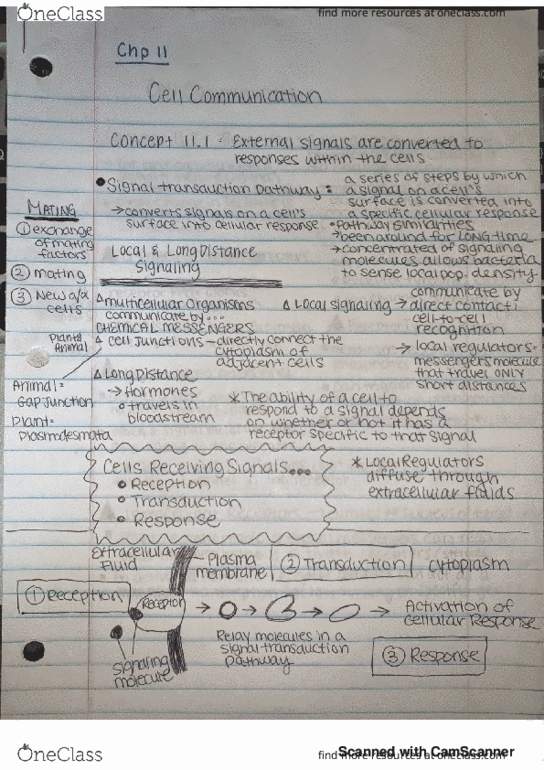 OneClass
find more resources at oneclass.com
Chp 11
Cell Communication
Concept 11.1: External signals are converted to
responses within the cells
• Signal transduction pathway: a series of steps by which
a signal on a cell's
surface is converted into
a specific cellular response
→ converts signals on a cell's
surface into cellular response
• Pathway similarities
→ been around for long time
→ concentrated of signaling
molecules allows bacteria
to sense local pop. density
MATING
① exchange
of mating
factors
② mating
③ New a/α
cells
Local & Long Distance
Signaling
△ multicellular Organisms
communicate by...
CHEMICAL MESSENGERS
△ Local signaling → communicate by
direct contact:
cell-to-cell
recognition
→ local regulators-
messengers molecule
that travel ONLY
short distances
Plant &
Animal
△ cell junctions – directly connect the
cytoplasm of
adjacent cells
Animal =
Gap Junction
Plant =
Plasmodesmata
△ Long Distance
→ Hormones
• travels in
bloodstream
* The ability of a cell to
respond to a signal depends
on whether or not it has a
receptor specific to that signal
Cells Receiving Signals...
• Reception
• Transduction
• Response
* Local Regulators
diffuse through
extracellular fluids
Extracellular
Fluid
Plasma
membrane
② Transduction
cytoplasm
① Reception
Receptor
→ Activation of
Cellular Response
Relay molecules in a
signal transduction
pathway
③ Response
signaling
molecule
OneClass
find more resources at oneclass.com
Scanned with CamScanner